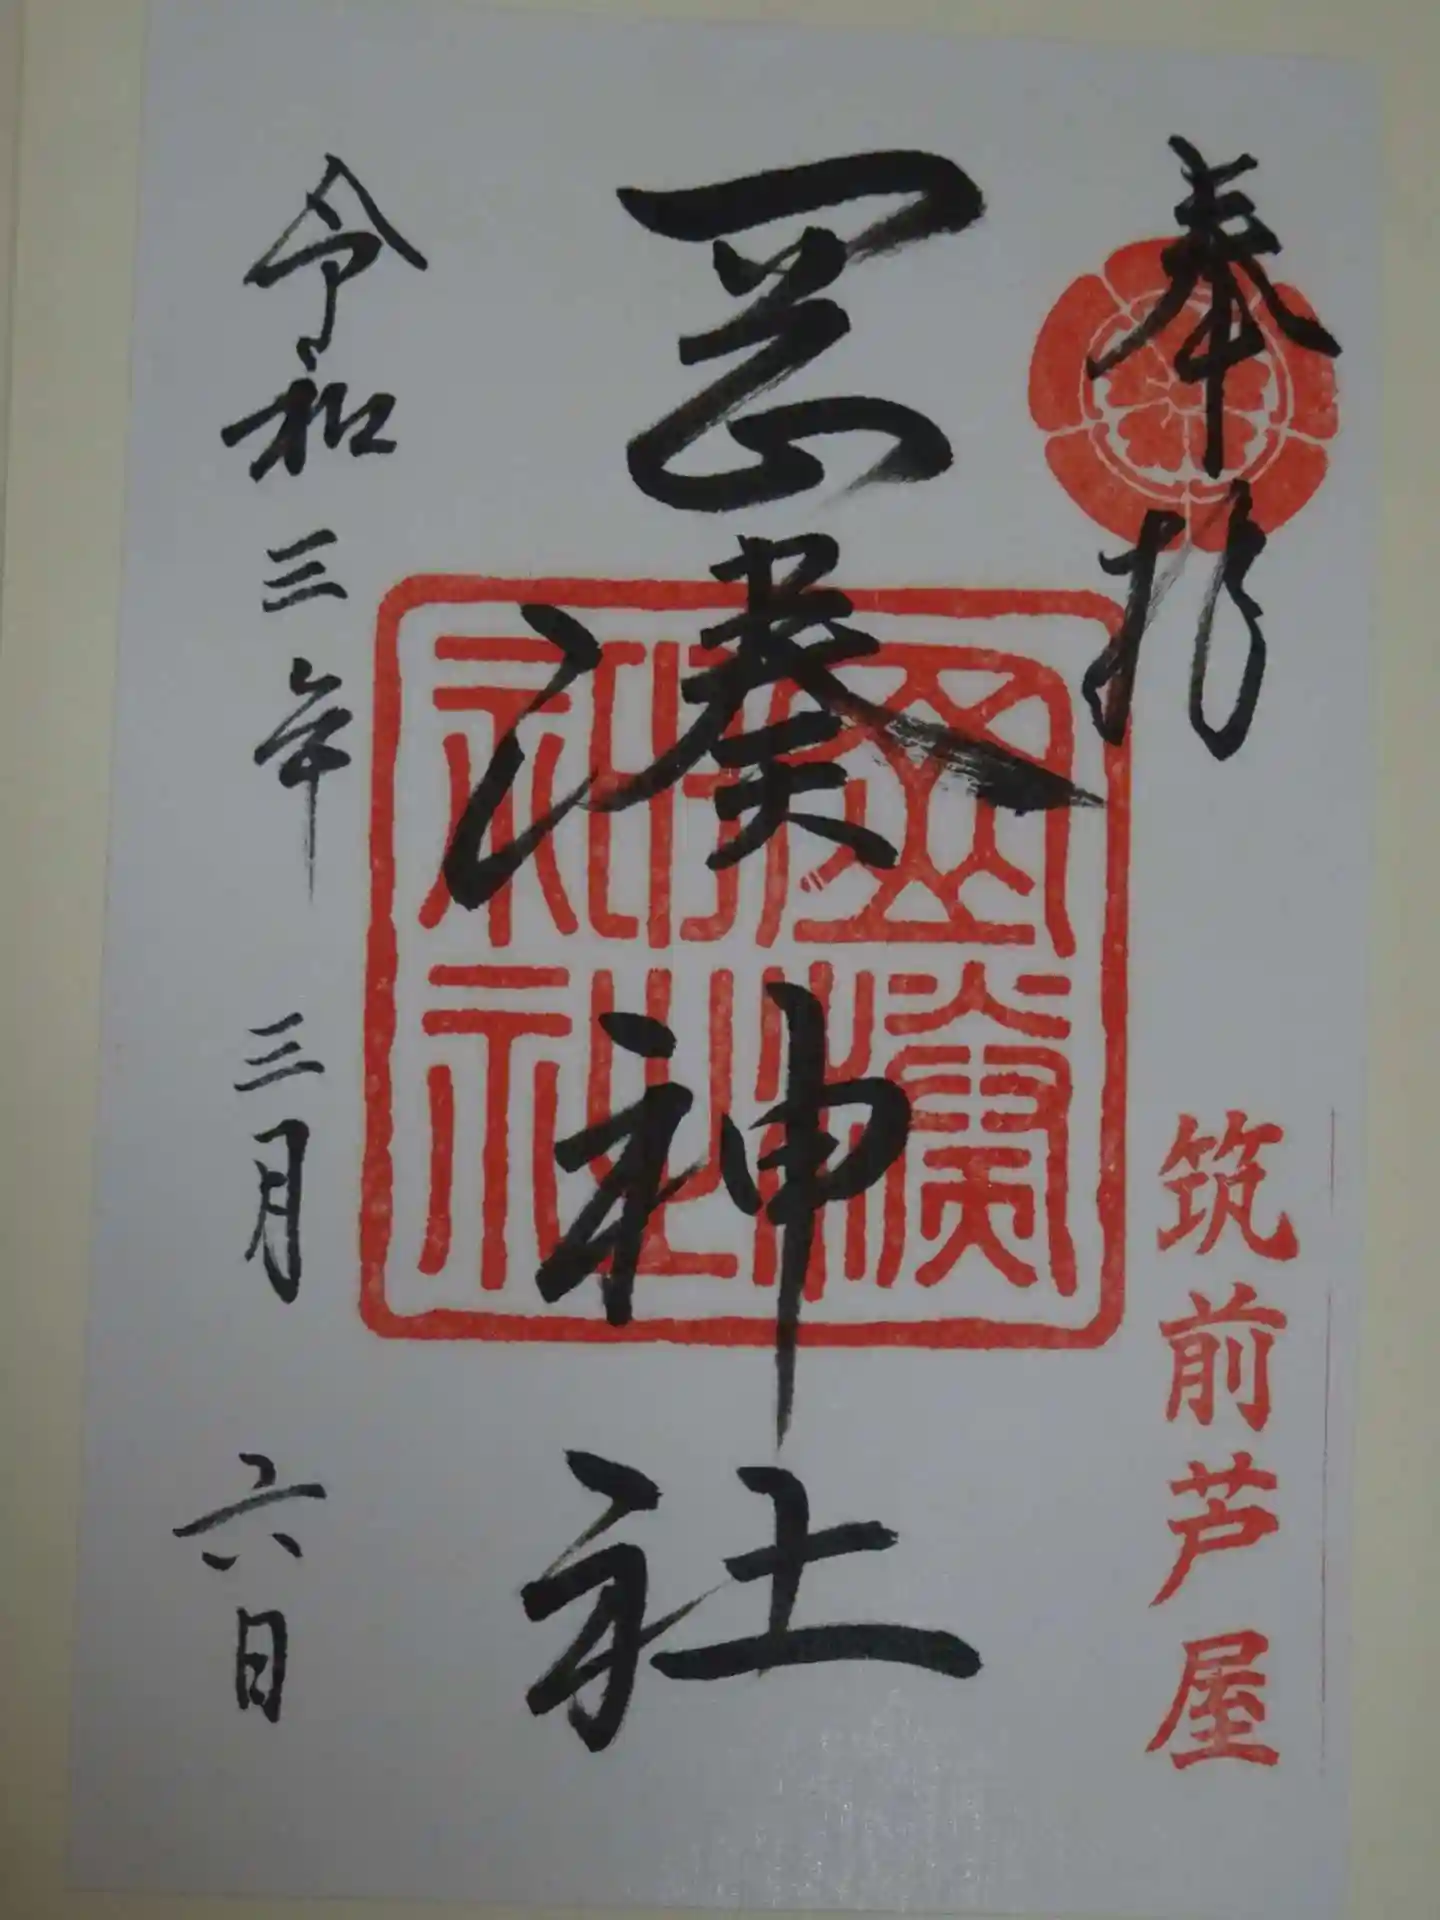 奉拝
筑前芦屋
岡湊神社
岡湊神社
令和三年 三月 六日